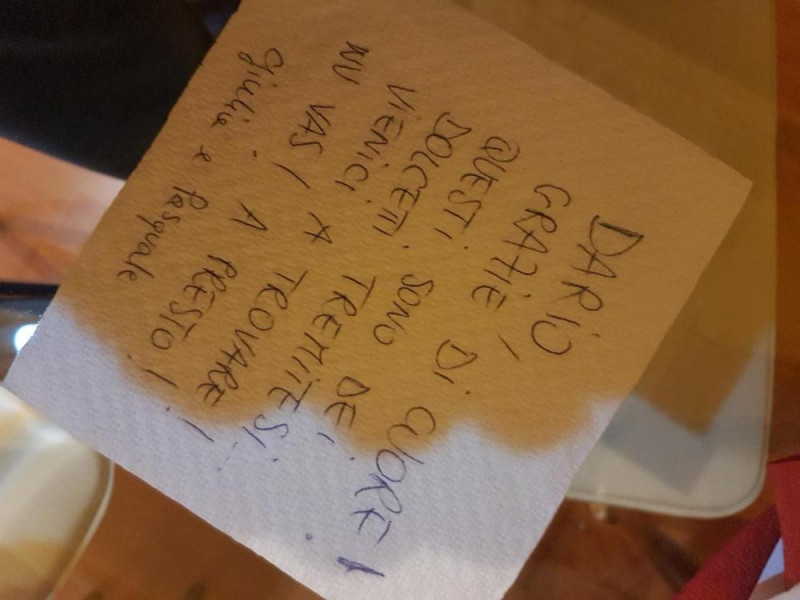 DARIO,
GRAZIE, DI CUORE!
QUESTI SONO DEI
DOLCETTI TREMITESI.
VIENICI A TROVARE!
NU VAS! A PRESTO!!
Giulia e Pasquale